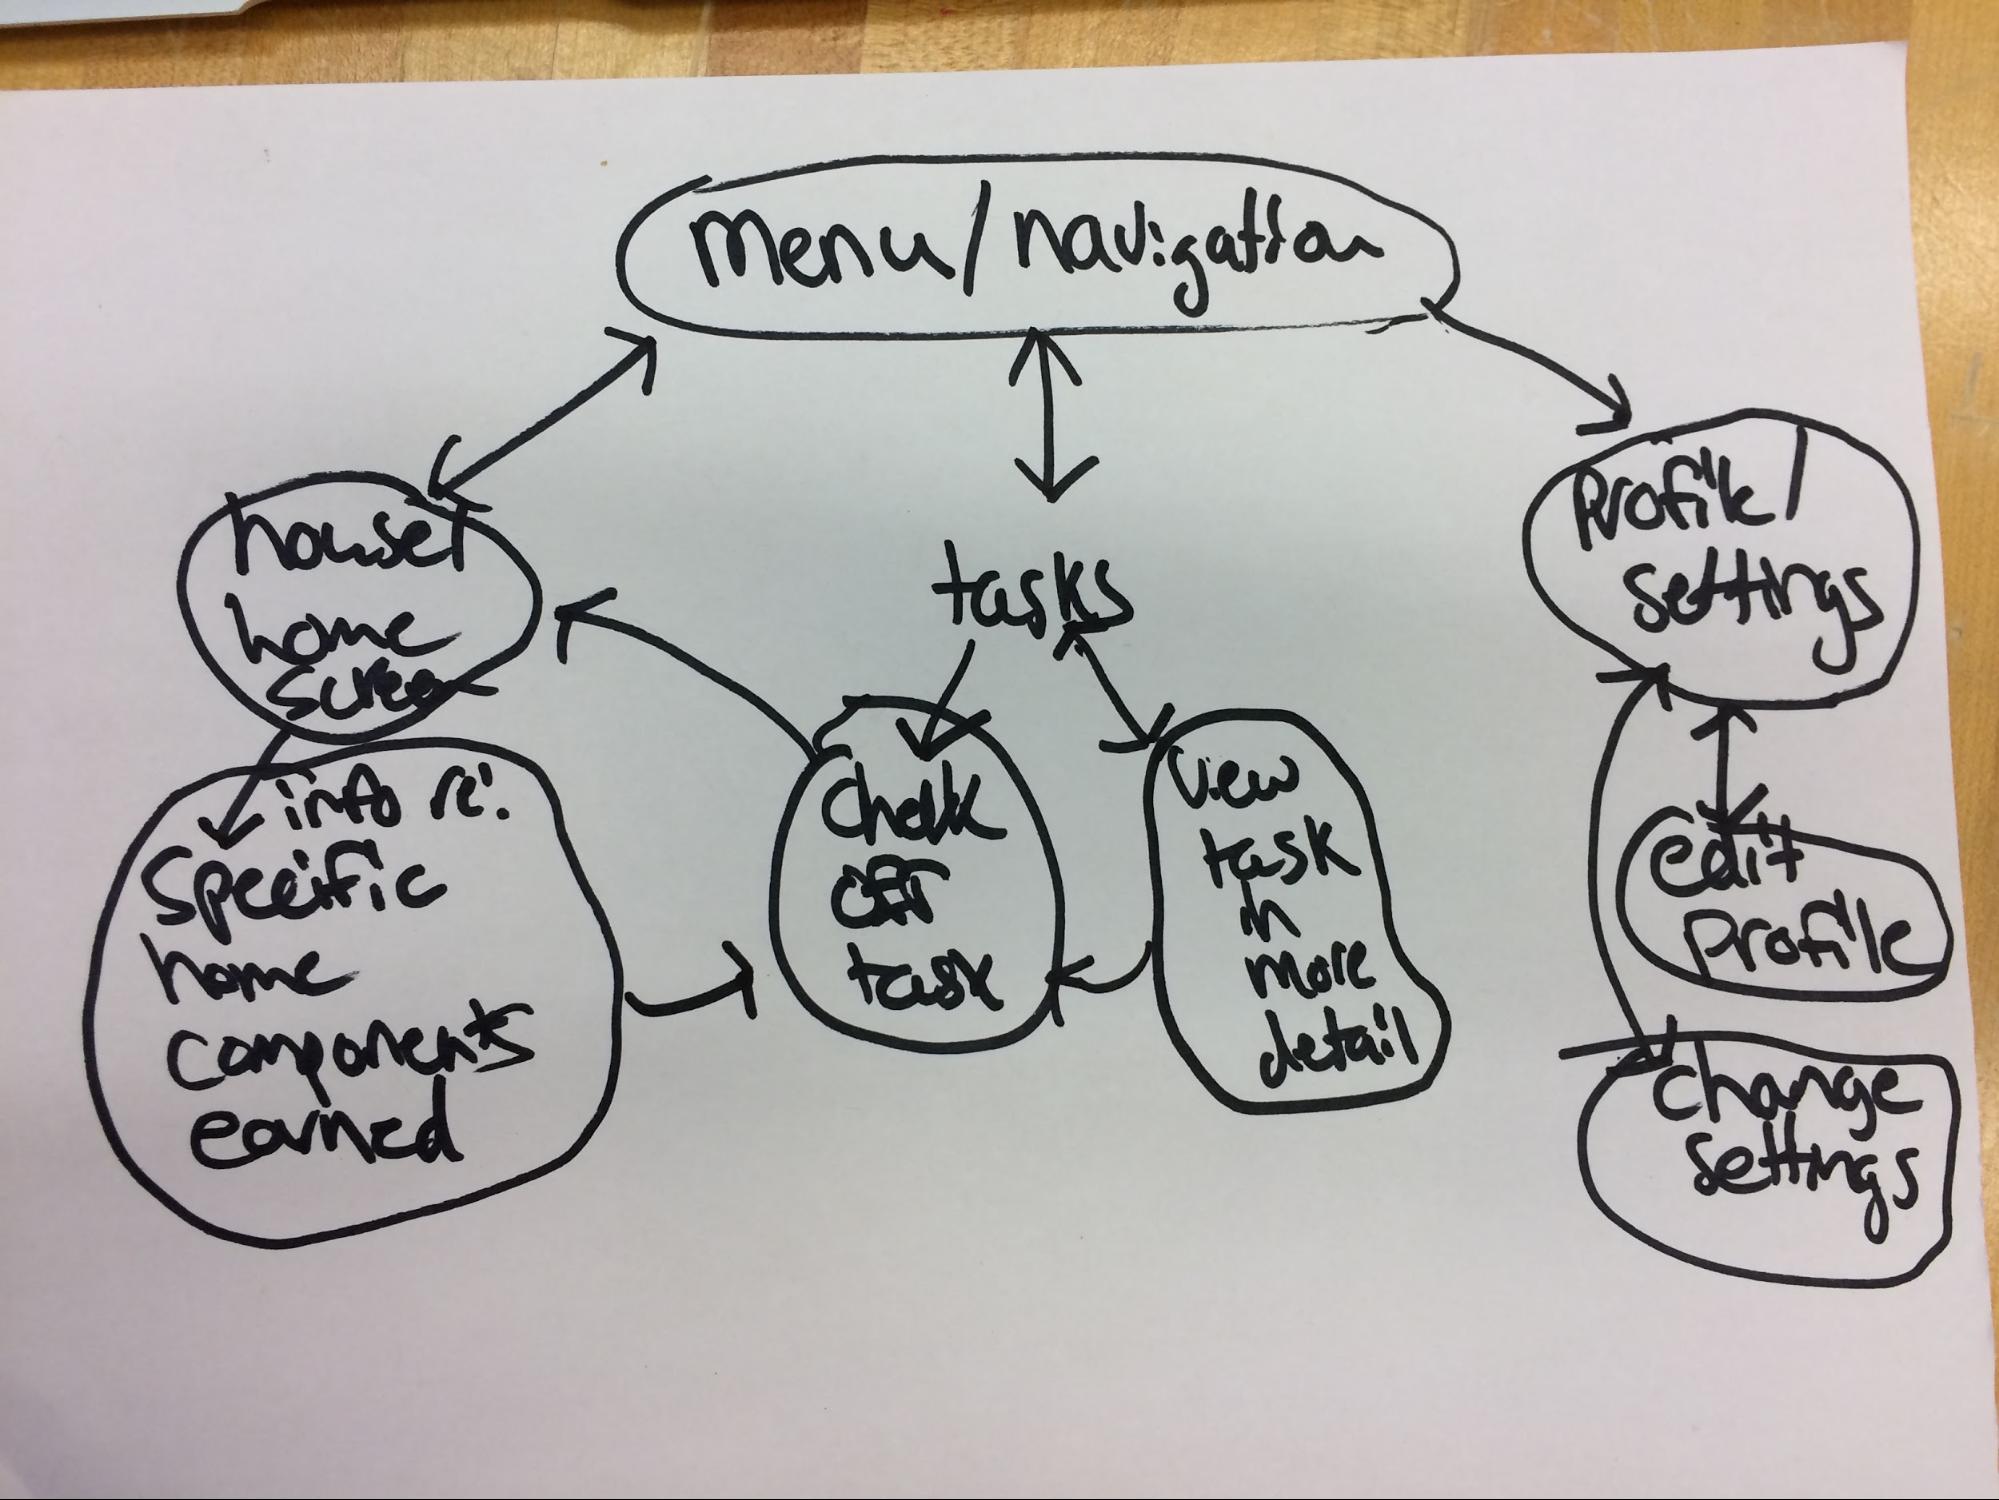 menu/navigation
house/
home
screen
tasks
Profile/
settings
info re:
specific
home
components
earned
Check
off
task
view
task
in
more
detail
edit
profile
change
settings